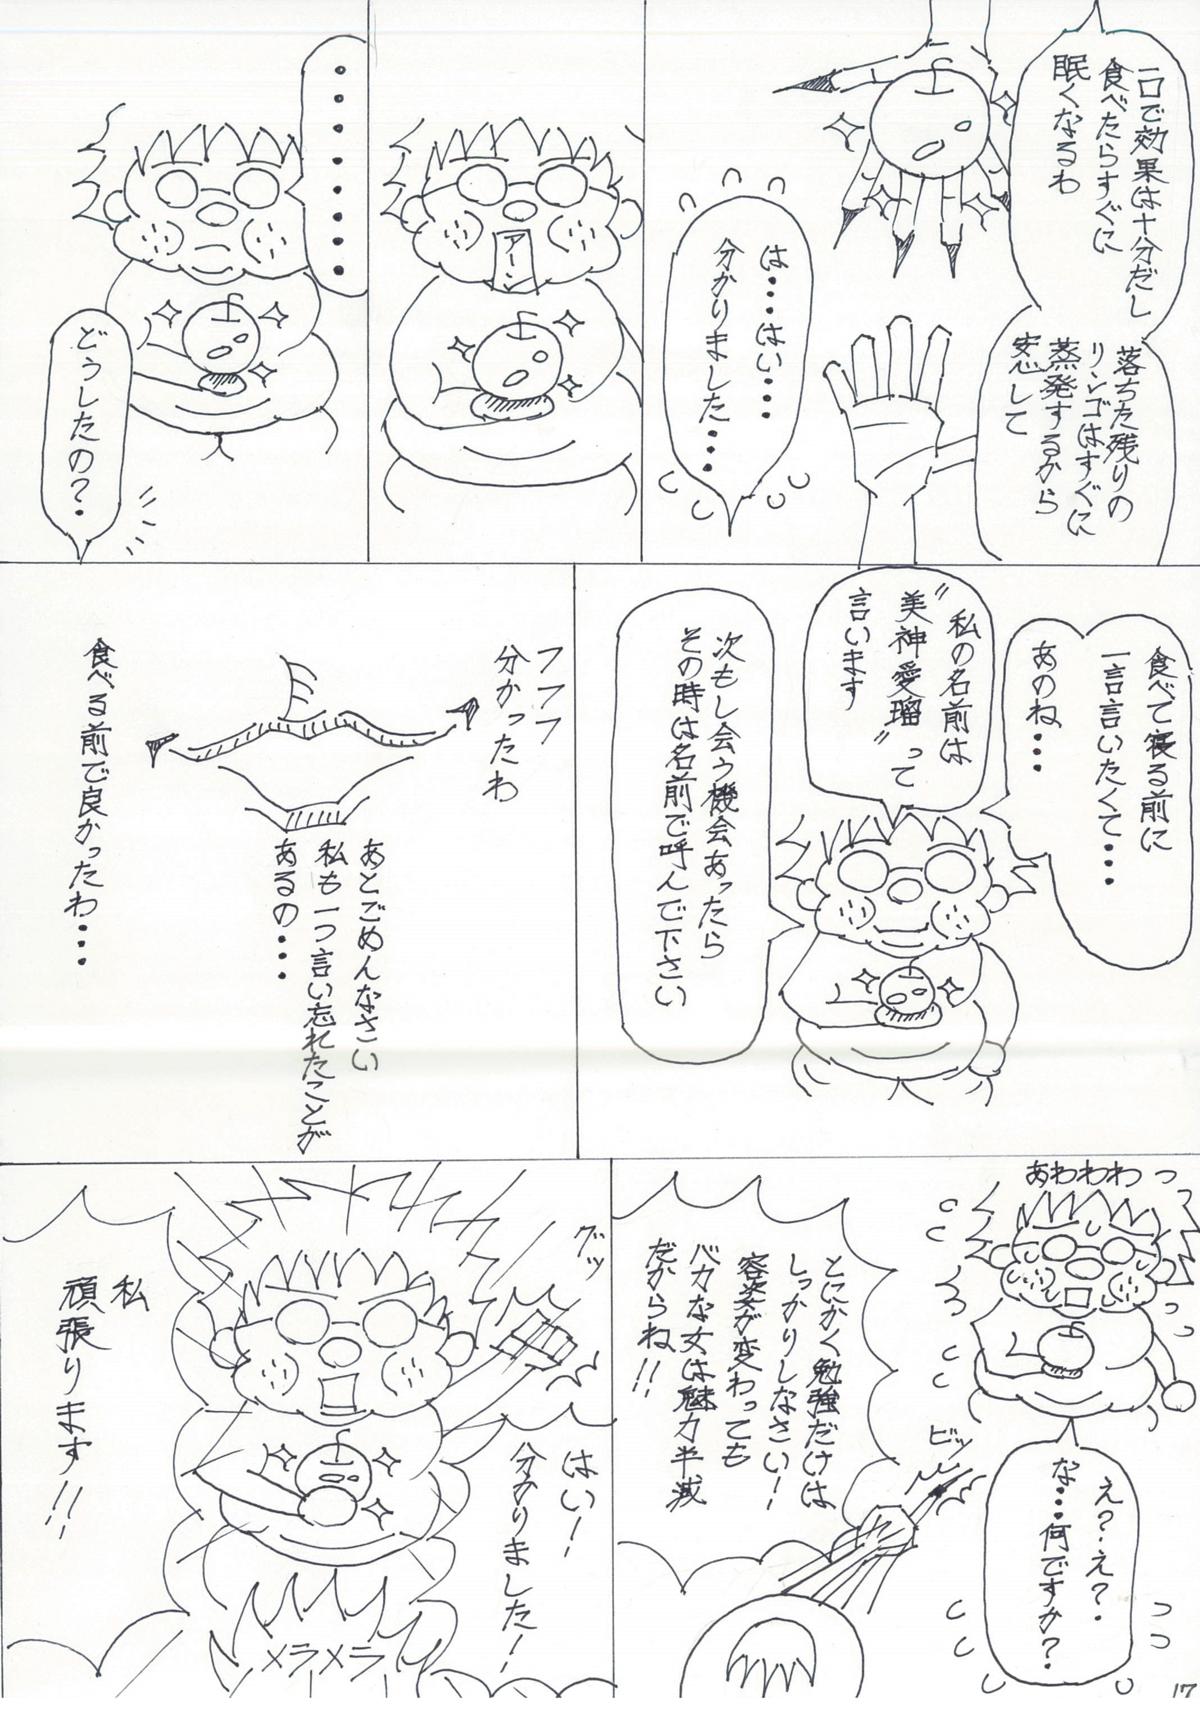 一口で効果は十分だし
食べたらすぐに
眠くなるわ
落ちた残りの
リンゴはすぐに
蒸発するから
安心して
は・・・はい・・・・
分かりました・・・
アーン
・・・・・・・・
どうしたの?
食べて寝る前に
一言言いたくて・・・・
あのね・・・・
私の名前は
〝美神愛瑠〟って
言います
次もし会う機会あったら
その時は名前で呼んで下さい
フフフ
分かったわ
あとごめんなさい
私も一つ言い忘れたことが
あるの・・・・
食べる前で良かったわ・・・
あわわわっ
え?え?
な・・・何ですか?
ビッ
とにかく勉強だけは
しっかりしなさい!
容姿が変わっても
バカな女は魅力半減
だからね!!
グッ
はい!
分かりました!
私
頑張ります!!
メラメラ
17